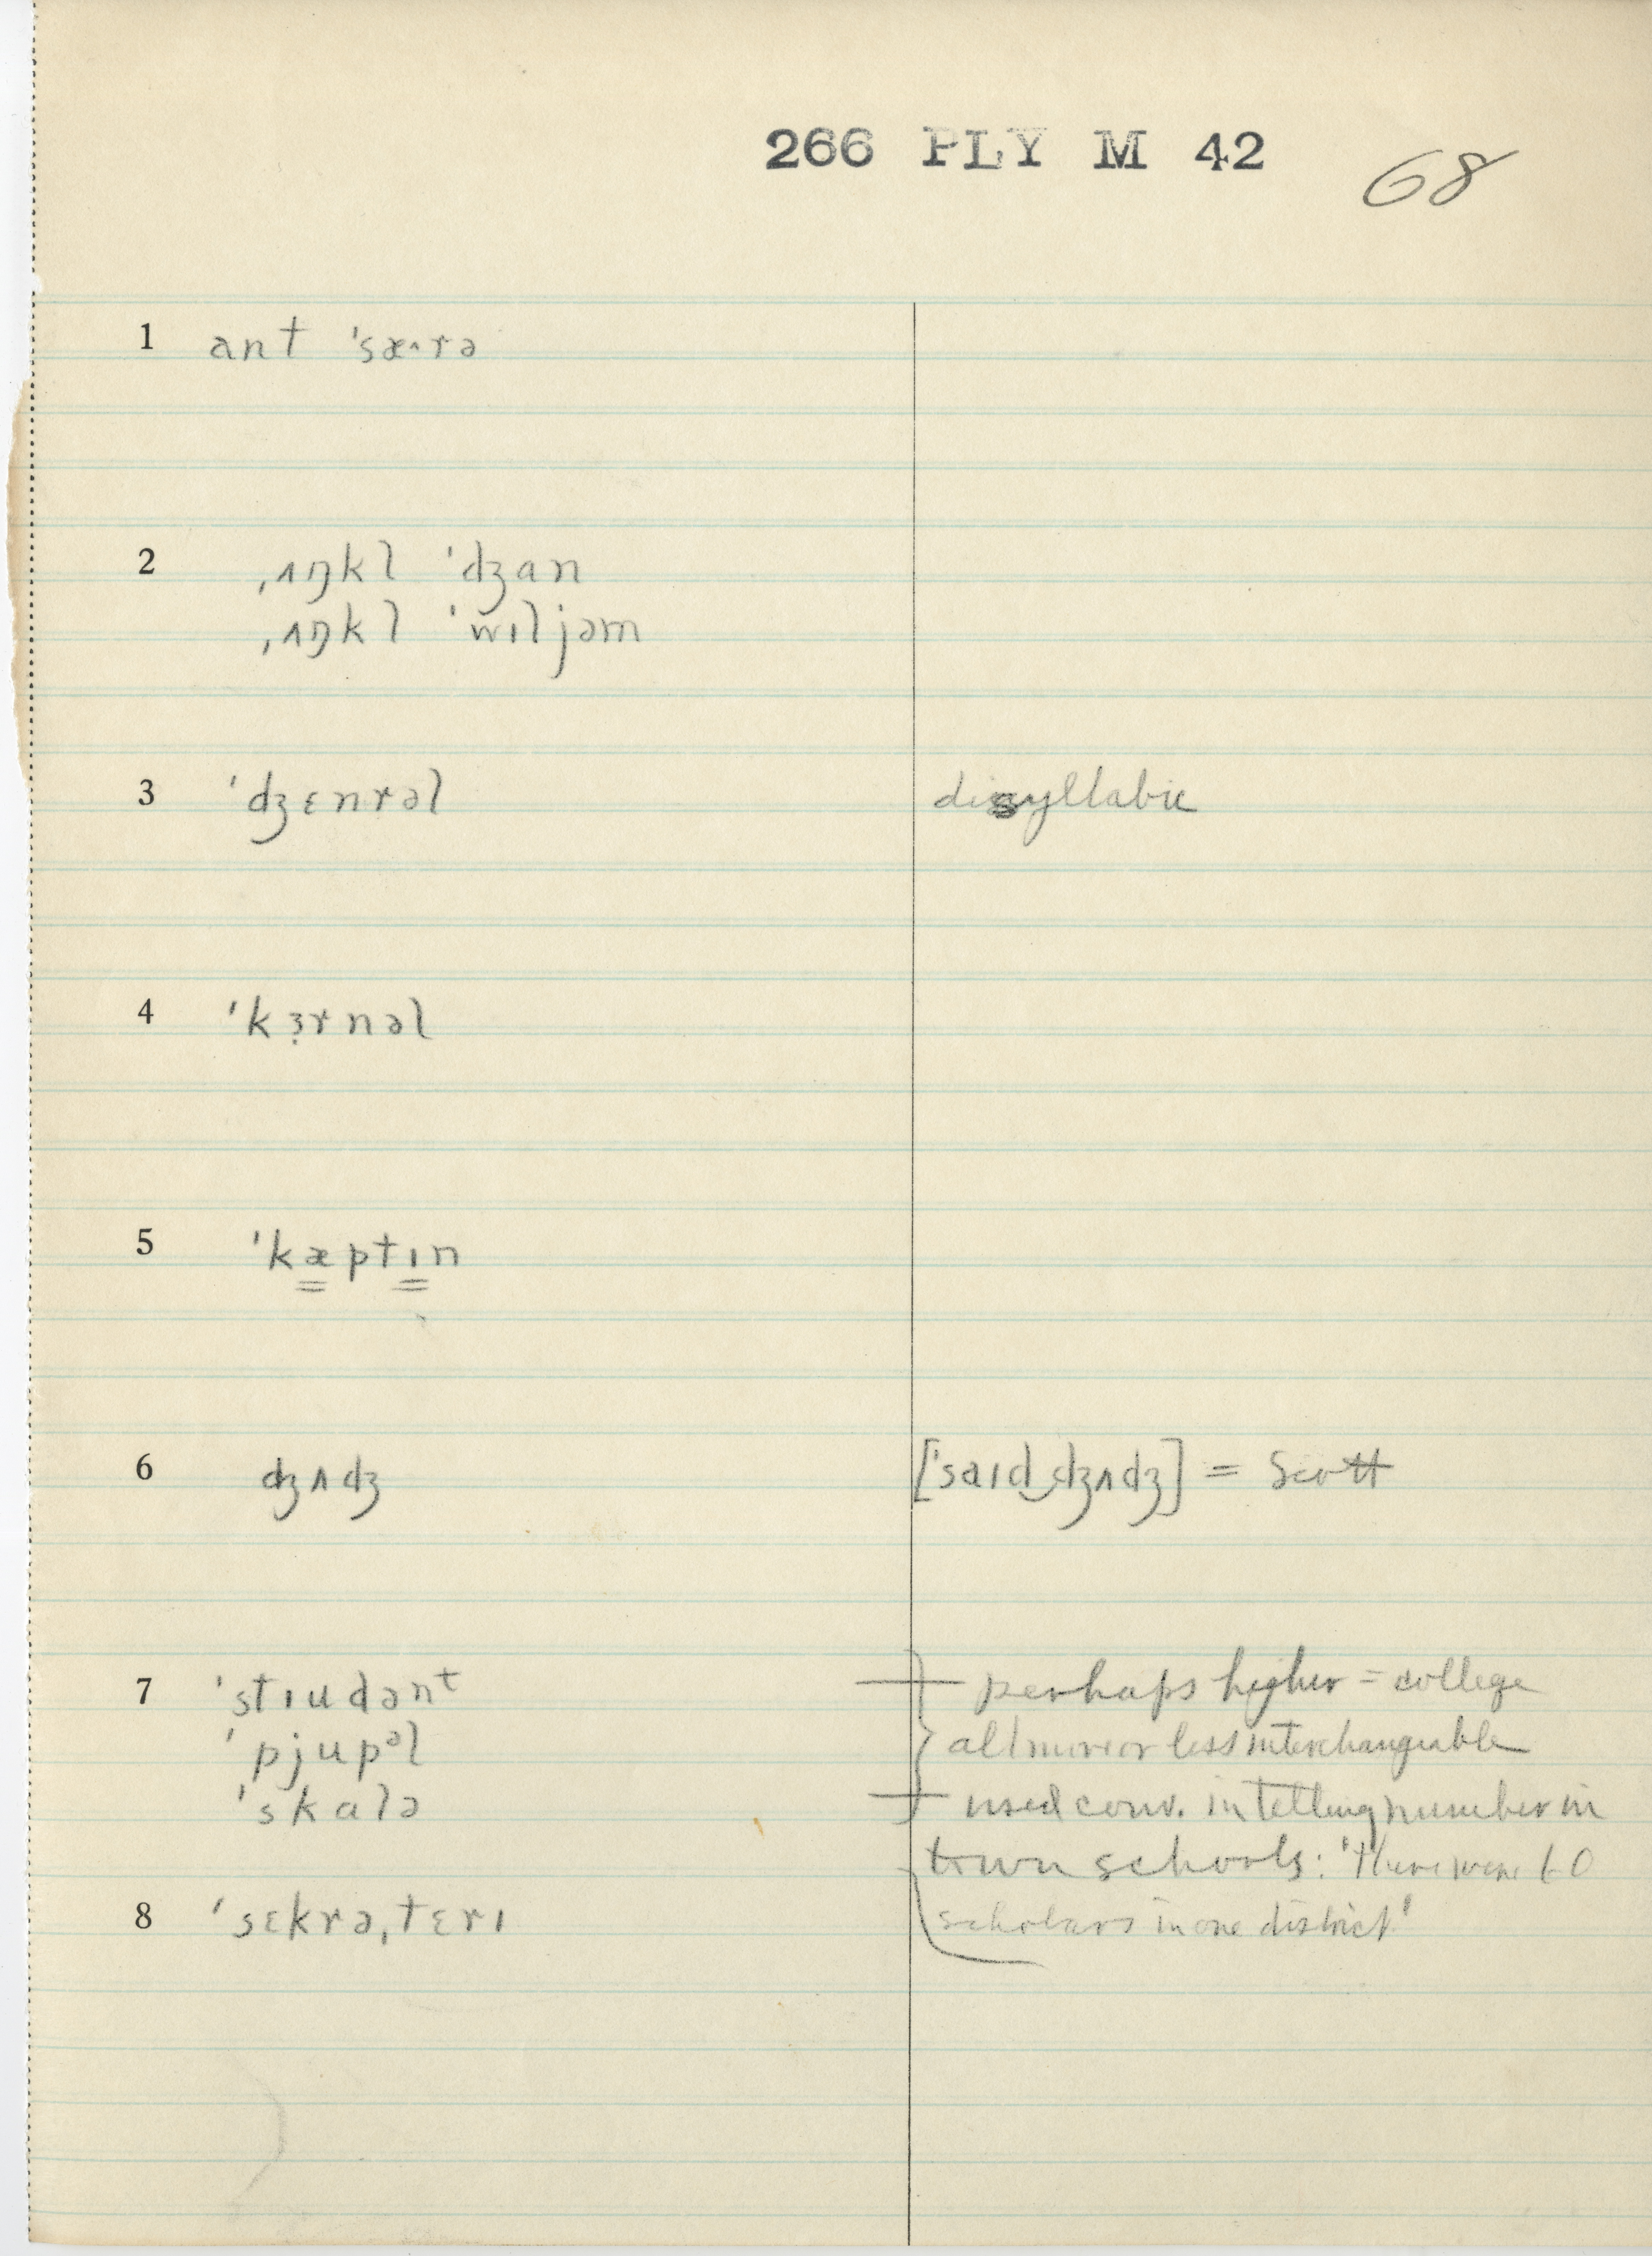 266 PLY M 42
68
1 ant ˈsæ˔rə
2 ˌʌŋkl ˈdʒan
ˌʌŋkl ˈwɪljəm
3 ˈdʒɛnrəl disyllabic
4 ˈkɜ̣rnəl
5 ˈkæptɪn
6 dʒʌdʒ [ˈsaɪd‿dʒʌdʒ] = Scott
7 ˈstɪudənᵗ perhaps higher = college
ˈpjupᵊl all more or less interchangeable
ˈskalə used conv. in telling number in
town schools: 'there were 60
8 ˈsɛkrəˌtɛrɪ scholars in one district'